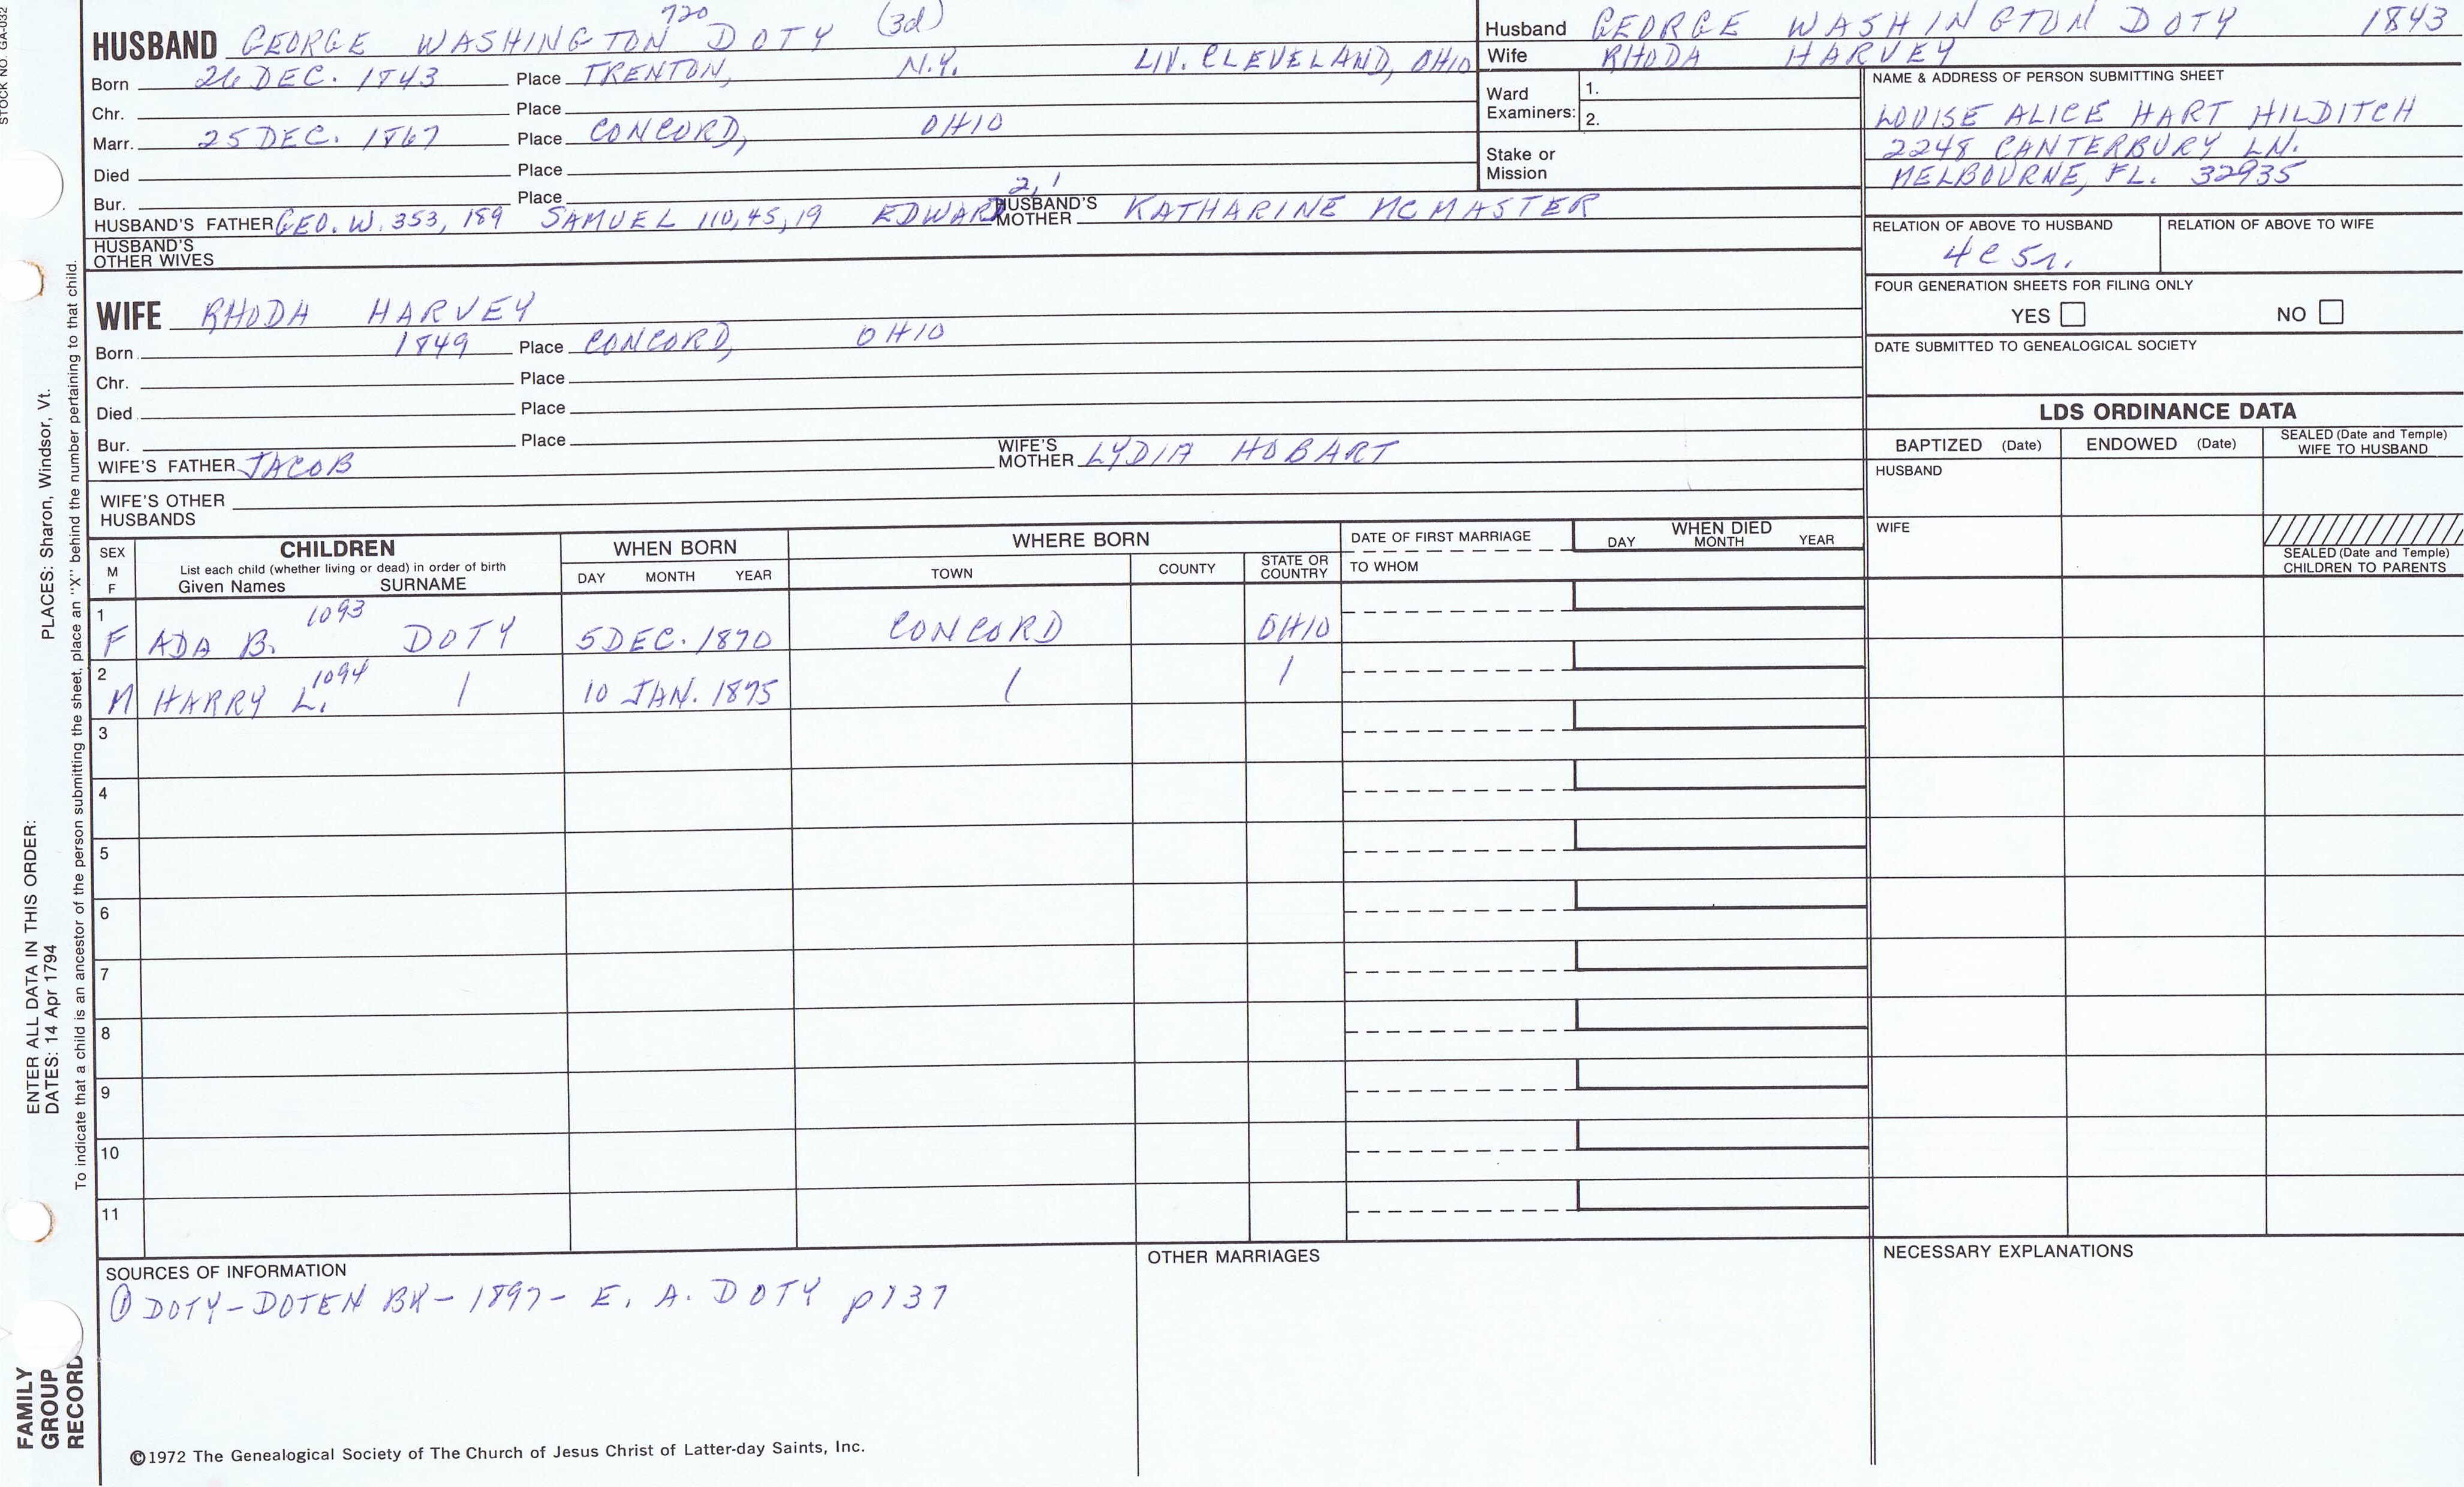 STOCK NO. GA-032
PLACES: Sharon, Windsor, Vt.
ENTER ALL DATA IN THIS ORDER:
DATES: 14 Apr 1794
To indicate that a child is an ancestor of the person submitting the sheet, place an "X" behind the number pertaining to that child.
FAMILY
GROUP
RECORD
720
HUSBAND GEORGE WASHINGTON DOTY (3d)
Born 26 DEC. 1843 Place TRENTON, N.Y. LIV. CLEVELAND, OHIO
Chr. Place
Marr. 25 DEC. 1867 Place CONCORD, OHIO
Died Place
Bur. Place
2, 1
HUSBAND'S FATHER GEO. W. 353, 189 SAMUEL 110, 45, 19 EDWARD HUSBAND'S MOTHER KATHARINE MCMASTER
HUSBAND'S
OTHER WIVES
WIFE RHODA HARVEY
Born 1849 Place CONCORD, OHIO
Chr. Place
Died Place
Bur. Place
WIFE'S FATHER JACOB WIFE'S MOTHER LYDIA HOBART
WIFE'S OTHER
HUSBANDS
Husband GEORGE WASHINGTON DOTY 1843
Wife RHODA HARVEY
Ward
Examiners: 1.
2.
Stake or
Mission
NAME & ADDRESS OF PERSON SUBMITTING SHEET
LOUISE ALICE HART HILDITCH
2248 CANTERBURY LN.
MELBOURNE, FL. 32935
RELATION OF ABOVE TO HUSBAND RELATION OF ABOVE TO WIFE
4C 5r.
FOUR GENERATION SHEETS FOR FILING ONLY
YES NO
DATE SUBMITTED TO GENEALOGICAL SOCIETY
LDS ORDINANCE DATA
BAPTIZED (Date) ENDOWED (Date) SEALED (Date and Temple) WIFE TO HUSBAND
HUSBAND
WIFE
SEALED (Date and Temple)
CHILDREN TO PARENTS
SEX
M
F
CHILDREN
List each child (whether living or dead) in order of birth
Given Names SURNAME
WHEN BORN
DAY MONTH YEAR
WHERE BORN
TOWN COUNTY STATE OR COUNTRY
DATE OF FIRST MARRIAGE
TO WHOM
WHEN DIED
DAY MONTH YEAR
1 1093
F ADA B. DOTY 5 DEC. 1870 CONCORD OHIO
2 1094
M HARRY L. / 10 JAN. 1875 / /
3
4
5
6
7
8
9
10
11
SOURCES OF INFORMATION
① DOTY-DOTEN BK- 1897- E. A. DOTY p137
OTHER MARRIAGES
NECESSARY EXPLANATIONS
©1972 The Genealogical Society of The Church of Jesus Christ of Latter-day Saints, Inc.